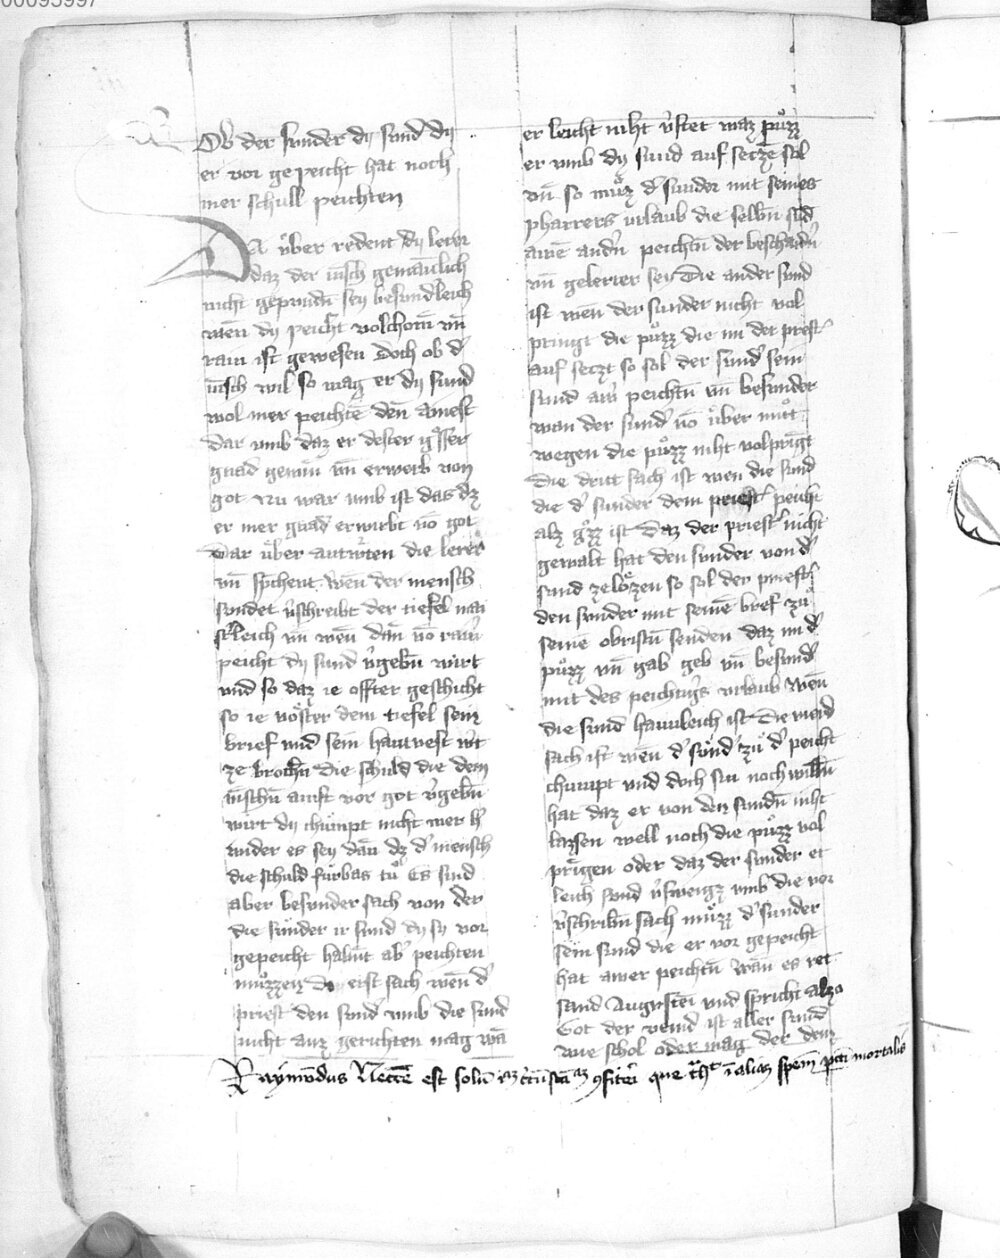 00095997
Ob der sunder dy sund dy
er vor gepeicht hat noch
mer schull peichten
Da vber redent dy lerer
daz der mensch gemainklich
nicht gepundn sey besunderleich
wen dy peicht volchom vn
rain ist gewesen Doch ob der
mensch wil so mag er dy sund
wol mer peichte den ainest
dar vmb daz er dester
gnad gewin vn erwerb von
got Nu war vmb ist das dz
er mer gnad erwirbt von got
Dar über antwurten die lerer
vn sprechent wen der mensch
sundet verschreibt der tiefel
wen dann von rainer
peicht dy sund vergebn wirt
vnd so daz ie offter geschicht
so ie vöster dem tiefel sein
brief vnd sein hantuest wirt
ze brochn die schuld die dem
menschn ainst vor got vergebn
wirt dy chumpt nicht mer her
wider es sey dan dz der mensch
die schuld furbas tů Es sind
aber besunder sach von der
die sunder ir sund dy sy vor
gepeicht habnt aber peichten
můzzen Dy erst sach wen der
priest den sund vmb die sund
nicht auz gerichten mag wan
er leicht niht verstet waz půzz
er vmb dy sund auf setze sol
vn so můz der sunder mit seines
pharrers vrlaub die selbn sund
ainem andern peichtn der beschaidn
vn gelerter sey Die ander sund
ist wen der sunder nicht vol
pringt die půzz die im der prester
auf setzt so sol der sunder sein
sund aber peichtn vn besunder
wan der sunder von über můt
wegen die půzz niht volpringt
Die drit sach ist wen die sund
die der sunder dem priester peicht
alz grozz ist Daz der priester nicht
gewalt hat den sunder von der
sund zelözen so sol der priester
den sunder mit seinem bref zů
seinem obristn senden daz im der
půzz vn gab geb vn besunder
mit des peichtigers vrlaub Wen
die sund haimleich ist Die vierd
sach ist wen der sunder zů der peicht
chumpt vnd doch sin noch willn
hat daz er von den sundn niht
lazzen well noch die půzz vol
pringen oder daz der sunder et
leich sund versweigz vmb die vor
verschribn sach můzz der sunder
sein sund die er vor gepeicht
hat awer peichtn Wan es ret
sand Augustein vnd spricht also
Got der veind ist aller sund
wie schol oder mag der dem
Raymundus Necesse est solum confiteri que in aliam speciem peccati mortalis